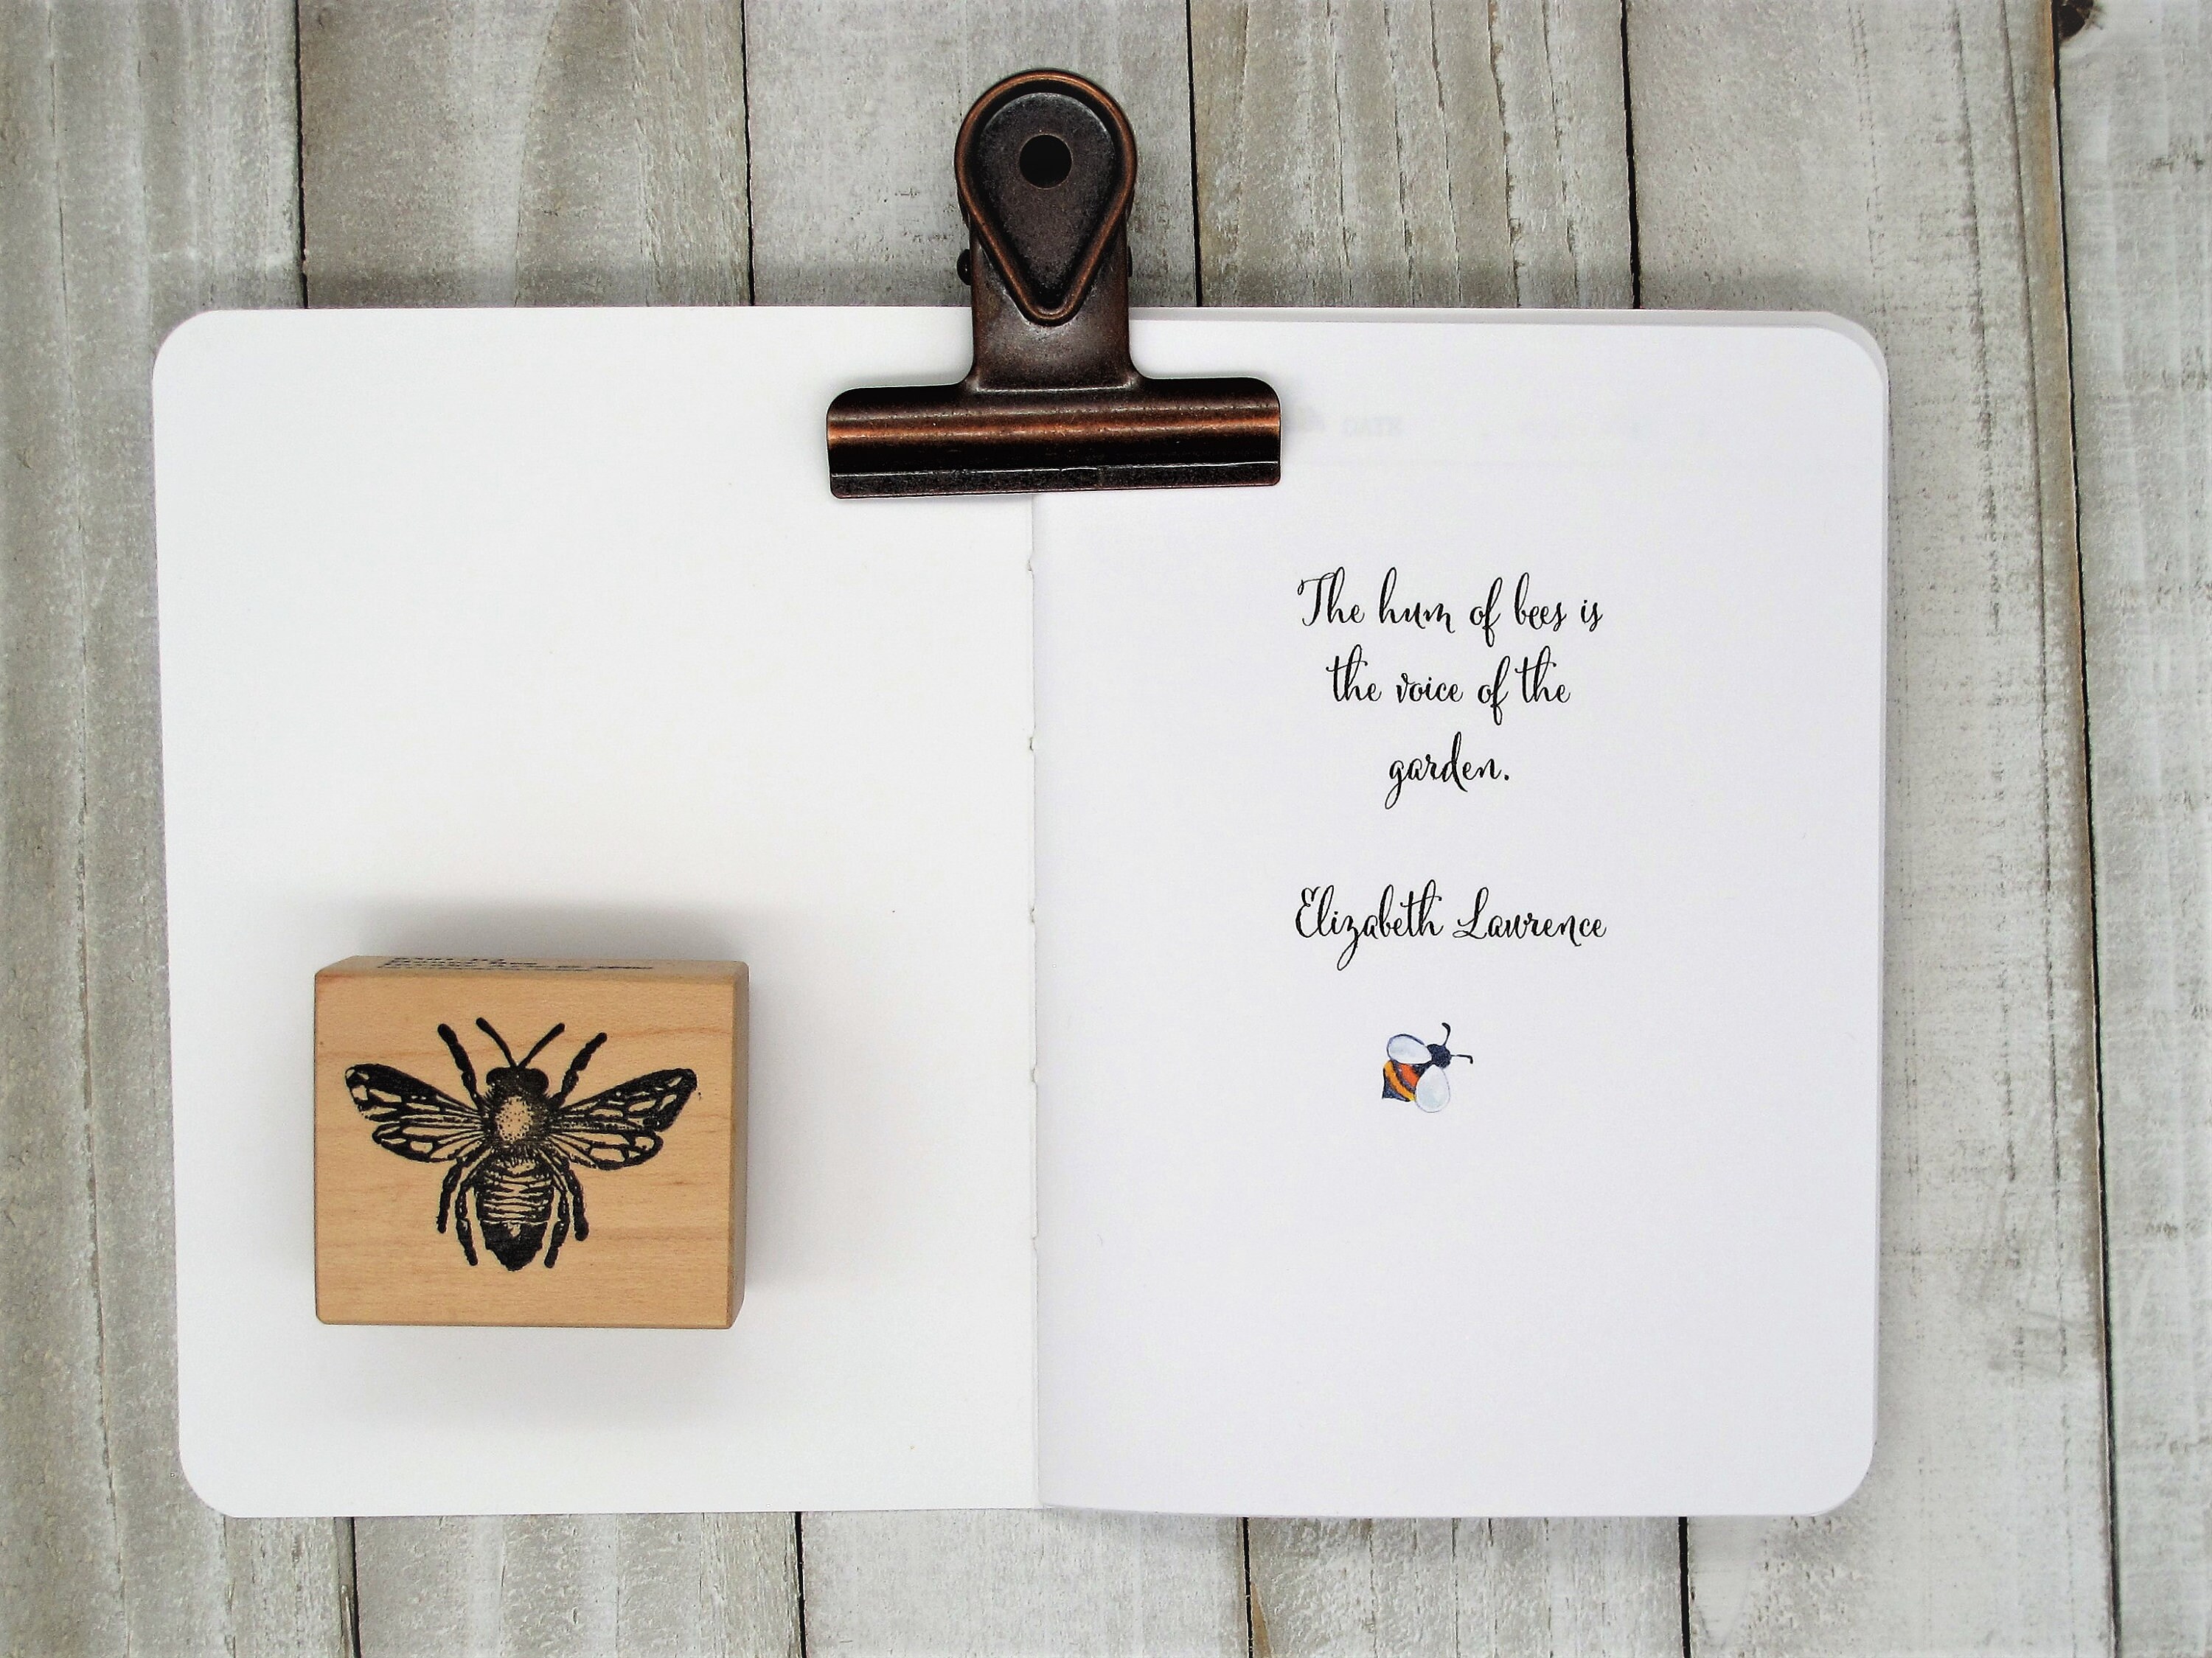 DATE
The hum of bees is
the voice of the
garden.
Elizabeth Lawrence